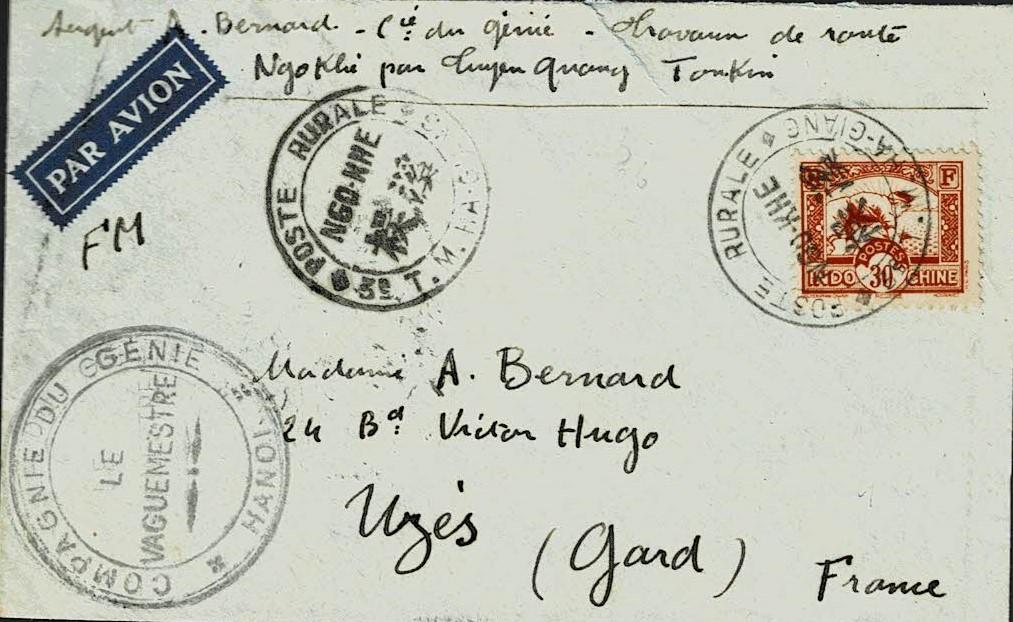 Sergent A. Bernard - Cie du génie - Travaux de route
Ngo Khê par Tuyen Quang Tonkin
PAR AVION
FM
POSTE RURALE
NGO-KHE
3º T. M. HA-G
POSTE RURALE HA-GIANG
NGO-KHE
F
POSTES
INDO 30 CHINE
COMPAGNIE DU GÉNIE HANOI
LE
VAGUEMESTRE
Madame A. Bernard
24 Bd. Victor Hugo
Uzés
(Gard)
France